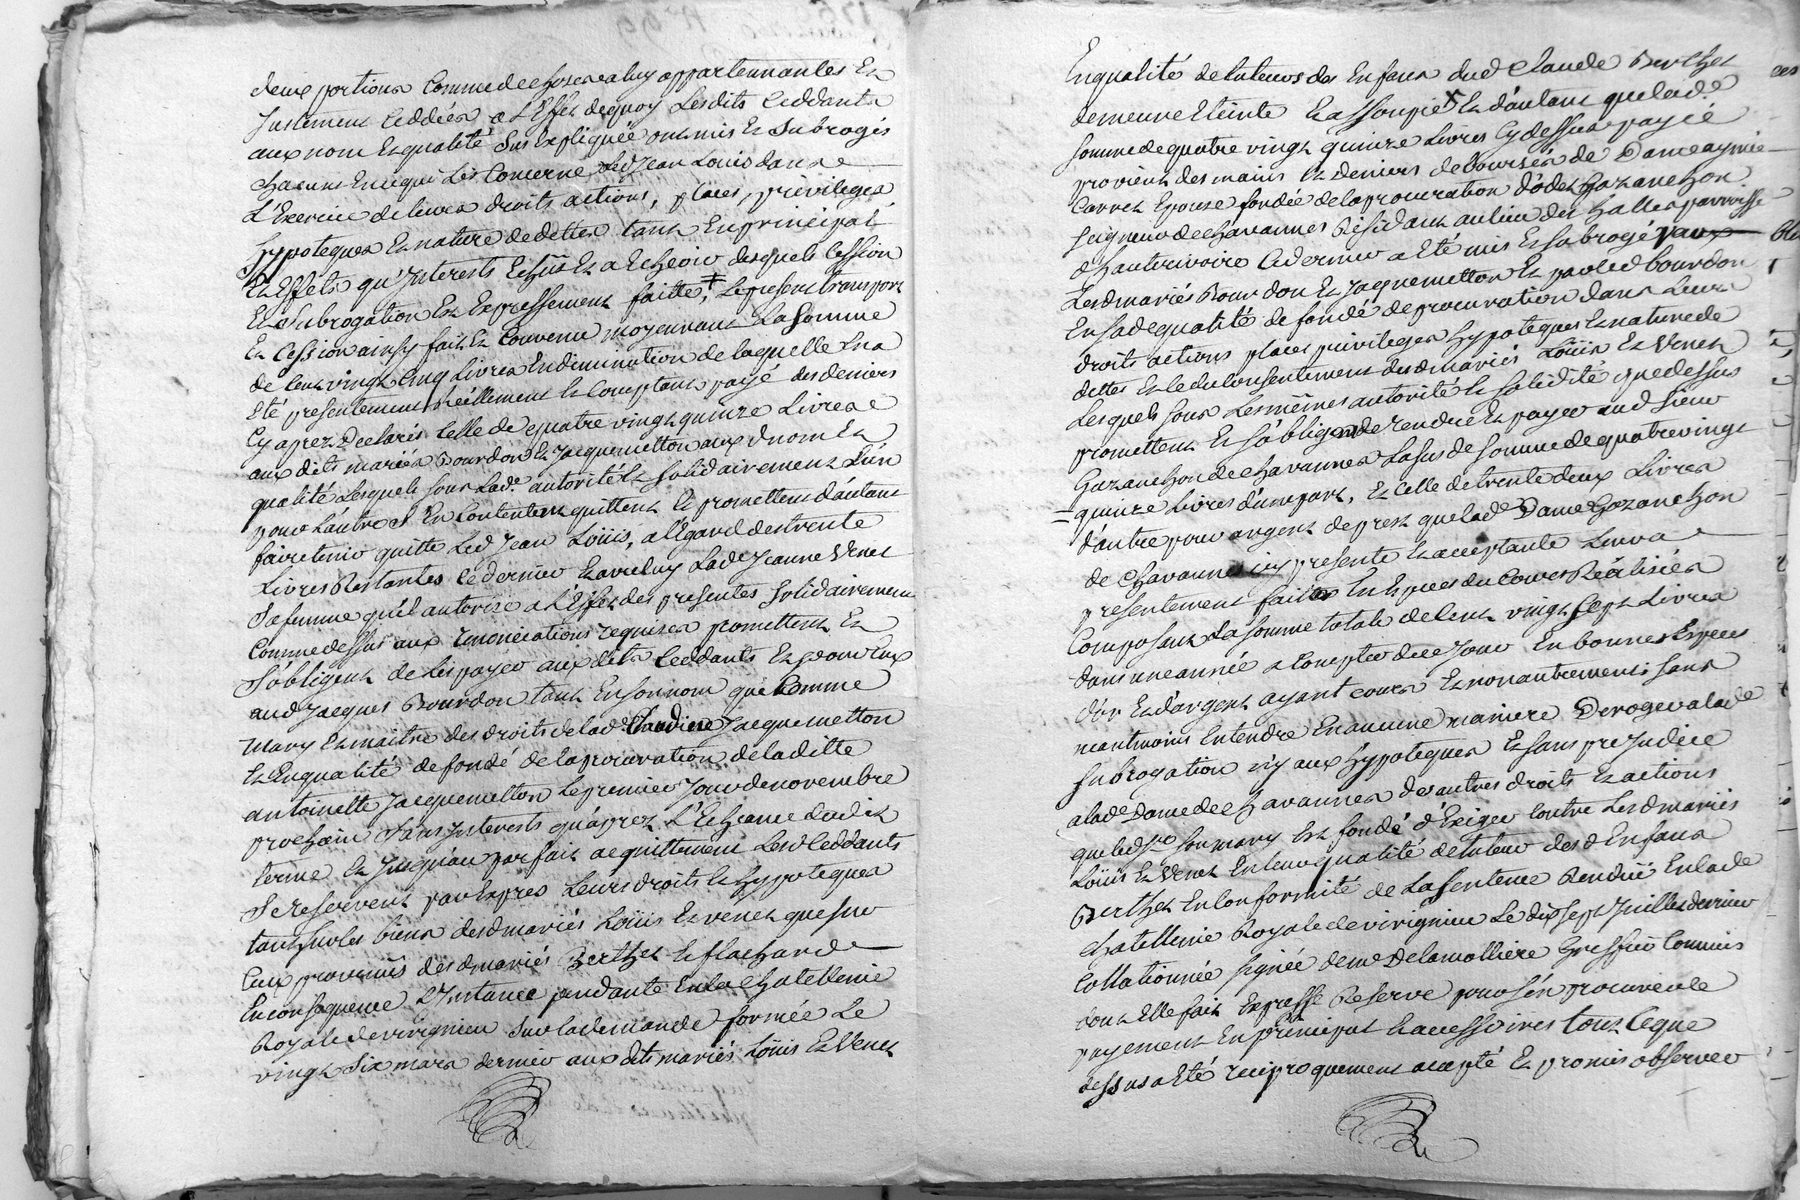 deux portions Comme de choses a luy appartennantes Et
Justement Ceddées a l'Effet dequoy Lesdits Ceddants
aux nom Enqualité Sus Expliquée ont mis Et Subrogés
chacuns Ence qui Les Concerne Led Jean Louis dans
L'Exercice de leurs droits actions, places, privileges
hypoteques Et nature de dettes tant En principal
Et Effets qu'Interests Echûs Et a Echeoir desquels Cession
Et Subrogation Est Expressement faitte, Le present transport
Et Cession ainsy fait Et Convenu moyennant La Somme
de Cent vingt Cinq Livres En diminution de laquelle En a
Eté presentement Réellement Et Comptant payé des deniers
Cy aprez declarés Celle de quatre vingt quinze Livres
aux dits mariés Bourdon Et Jacquemetton aux d nom Et
qualité Lesquels Sous Lade autorité Et Solidairement L'un
pour L'autre S'En Contentent quittent Et promettent d'autant
faire tenir quitte Led Jean Loüis, a l'Egard des trente
Livres Restantes Ce dernier Et avec luy Lade Jeanne Venet
Sa femme qu'il autorise a L'Effet des presentes Solidairement
Comme dessus aux renonciations requises promettent Et
S'obligent de Les payer aux dits Ceddants Et pour Eux
aud Jacques Bourdon tant En Son nom que Comme
Mary Et maitre des droits de lade Claudine Jacquemetton
Et Enqualité de fondé de la procuration de laditte
antoinette Jacquemetton Le premier Jour de novembre
prochain Sans Interests qu'aprez L'Echeance dudit
terme Et Jusqu'au parfait acquittement Lesd Ceddants
Se reservent par Expres Leurs droits Et hypoteques
tant Sur les biens desd mariés Loüis Et venet que Sur
Ceux provenûs desd mariés Berthet Et flachard
En consequence L'Instance pendante En la Chatellenie
Royale de virignieu Sur la demande formée Le
vingt Six mars dernier aux dits mariés Loüis Et Venet
Enqualité de tuteurs des Enfans dud Claude Berthet
demeure Eteinte Et assoupie Et d'autant que lade
Somme de quatre vingt quinze Livres Cy dessus payée
provient des mains Et deniers deboursés de Dame aymée
Carret Epouse fondée de la procuration d'odet Gazanchon
Seigneur de chavannes Résidant au lieu des halles parroisse
d'hauterivoire Ce dernier a Eté mis Et Subrogé par
Lesd mariés Bourdon Et Jacquemetton Et par led bourdon
En Sade qualité de fondé de procuration dans Leurs
droits actions places privileges hypoteques Et nature de
dettes Et le du Consentement desd mariés Loüis Et Venet
Lesquels Sous Les mêmes autorité Et Solidité que dessus
promettent Et S'obligent de rendre Et payer aud Sieur
Gazanchon de chavannes La Susde Somme de quatre vingt
quinze Livres d'une part, Et Celle de trente deux Livres
d'autre pour argent de prest que lade Dame Gazanchon
de Chavannes icy presente Et acceptante Leur a
presentement fait En Especes du Cours Réalisées
Composant La Somme totale de Cent vingt Sept Livres
dans une année a Compter de ce Jour En bonnes Especes
d'or Et d'argent ayant cours Et non autrement Sans
neantmoins Entendre En aucune maniere Deroger a lade
Subrogation ny aux hypoteques Et Sans prejudice
a lade Dame de Chavannes des autres droits Et actions
que led Sr Son mary Est fondé d'Exiger Contre Lesd mariés
Loüis Et Venet En leur qualité de tuteur desd Enfans
Berthet En Conformité de La Sentence Rendüe En lade
Chatellenie Royale de virignieu Le dix Sept Juillet dernier
Collationnée Signée de me Delamolliere Greffier Commis
dont Elle fait Expresse Reserve pour S'en procurer le
payement En principal Et accessoires tout Ceque
dessus a Eté reciproquement accepté Et promis observer